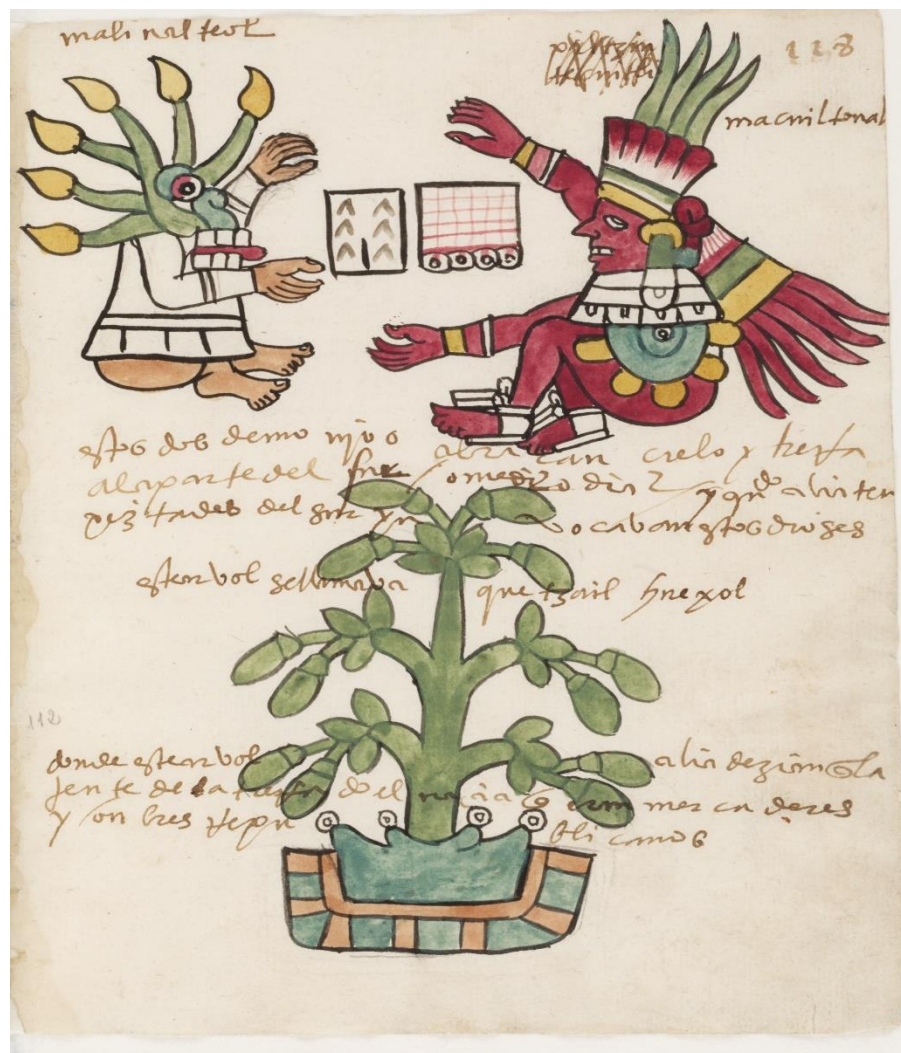 malinalteotl
118
macuiltonal
estos dos demonios abracan cielo y tierra
a la parte del sur o medio dia y quando avia ten
pestades del sur yn vocavan estos dioses
este arvol se llamava quetzail huexol
112
donde este arvol avia dezian q la
jente de la tierra do el nacia eran mercaderes
y onbres republicanos